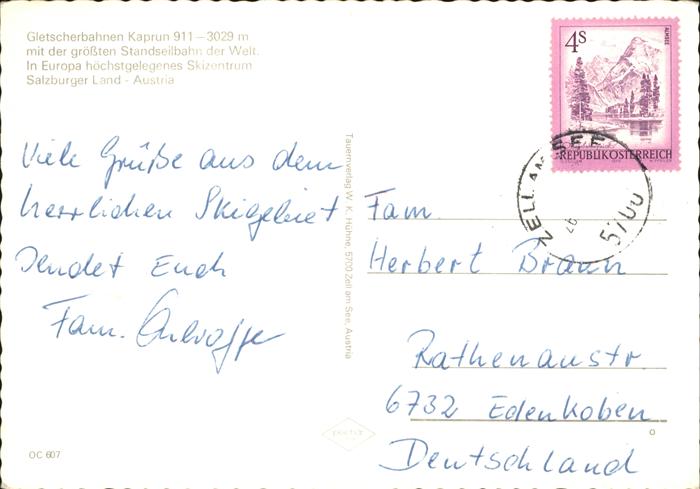 Gletscherbahnen Kaprun 911 – 3029 m
mit der größten Standseilbahn der Welt.
In Europa höchstgelegenes Skizentrum
Salzburger Land - Austria
Viele Grüße aus dem
herrlichen Skigebiet
sendet Euch
Fam.
OC 607
Tauernverlag W. K. Hühne, 5700 Zell am See, Austria
4S
ALMSEE
REPUBLIK ÖSTERREICH
ZELL AM SEE
5700
Fam.
Herbert Braun
Rathenaustr.
6732 Edenkoben
Deutschland